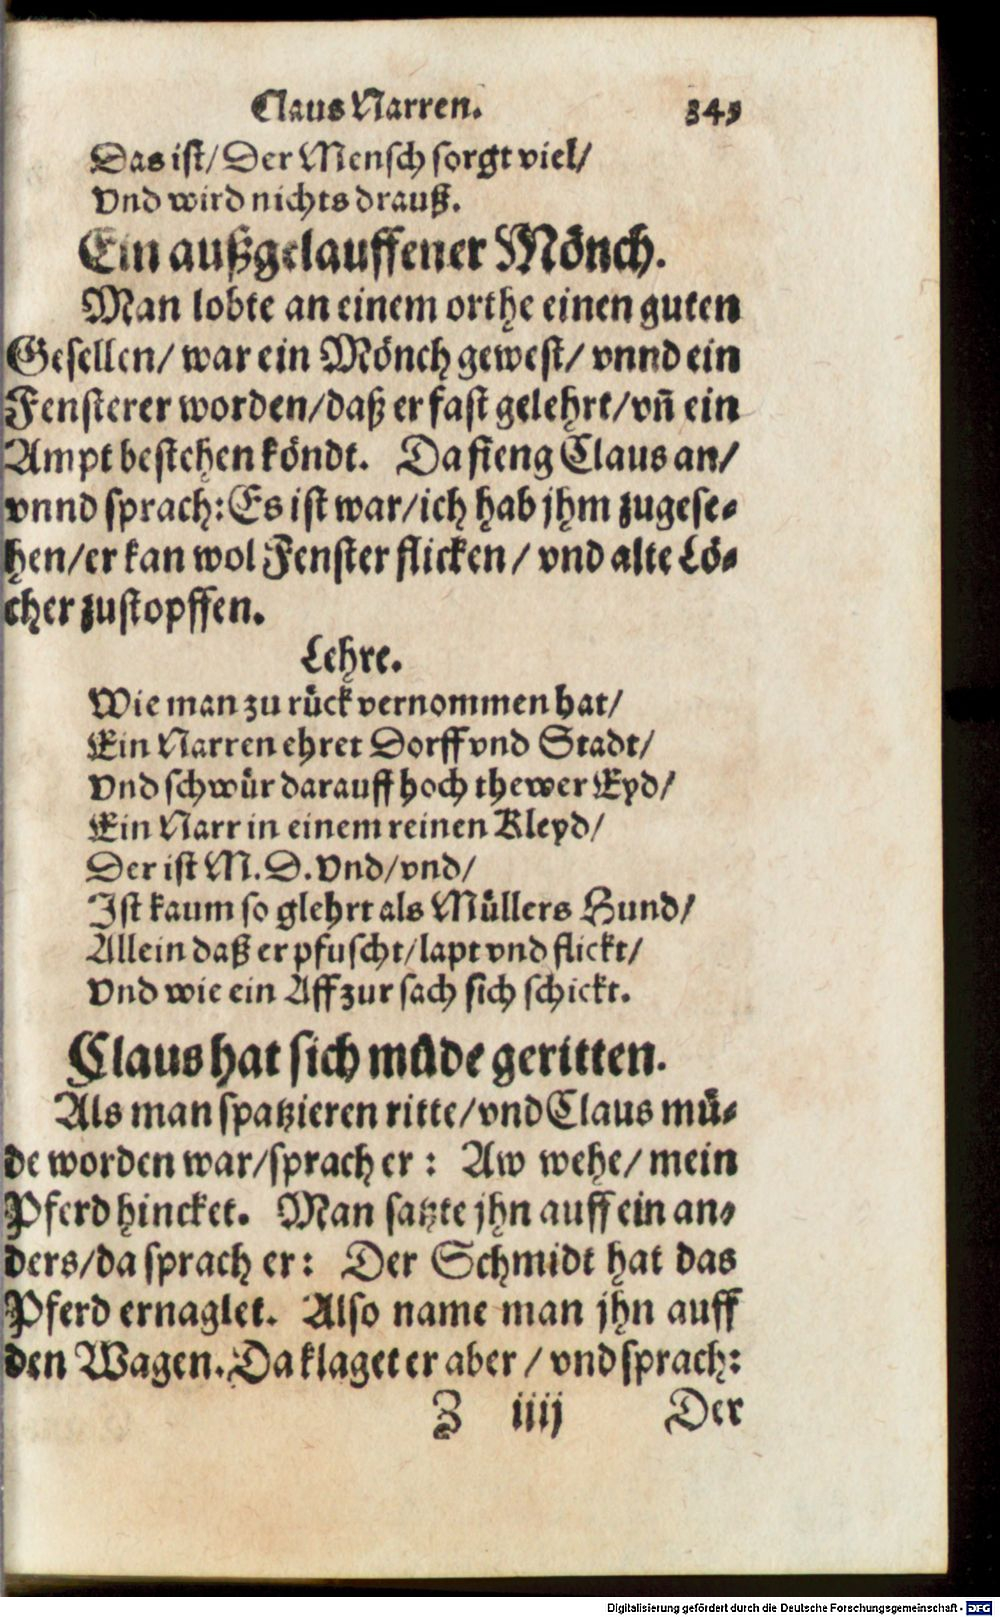 Claus Narren. 345
Das ist/ Der Mensch sorgt viel/
Vnd wird nichts drauß.
Ein außgelauffener Mönch.
Man lobte an einem orthe einen guten
Gesellen/ war ein Mönch gewest/ vnnd ein
Fensterer worden/daß er fast gelehrt/vñ ein
Ampt bestehen köndt. Da fieng Claus an/
vnnd sprach: Es ist war/ich hab jhm zugese-
hen/er kan wol Fenster flicken/ vnd alte Lö-
cher zustopffen.
Lehre.
Wie man zu rück vernommen hat/
Ein Narren ehret Dorff vnd Stadt/
Vnd schwür darauff hoch thewer Eyd/
Ein Narr in einem reinen Kleyd/
Der ist M. D. Vnd/vnd/
Ist kaum so glehrt als Müllers Hund/
Allein daß er pfuscht/lapt vnd flickt/
Vnd wie ein Aff zur sach sich schickt.
Claus hat sich müde geritten.
Als man spatzieren ritte/vnd Claus mü-
de worden war/sprach er: Aw wehe/ mein
Pferd hincket. Man satzte jhn auff ein an-
ders/da sprach er: Der Schmidt hat das
Pferd ernaglet. Also name man jhn auff
den Wagen. Da klaget er aber/ vnd sprach:
Z iiij Der
Digitalisierung gefördert durch die Deutsche Forschungsgemeinschaft - DFG